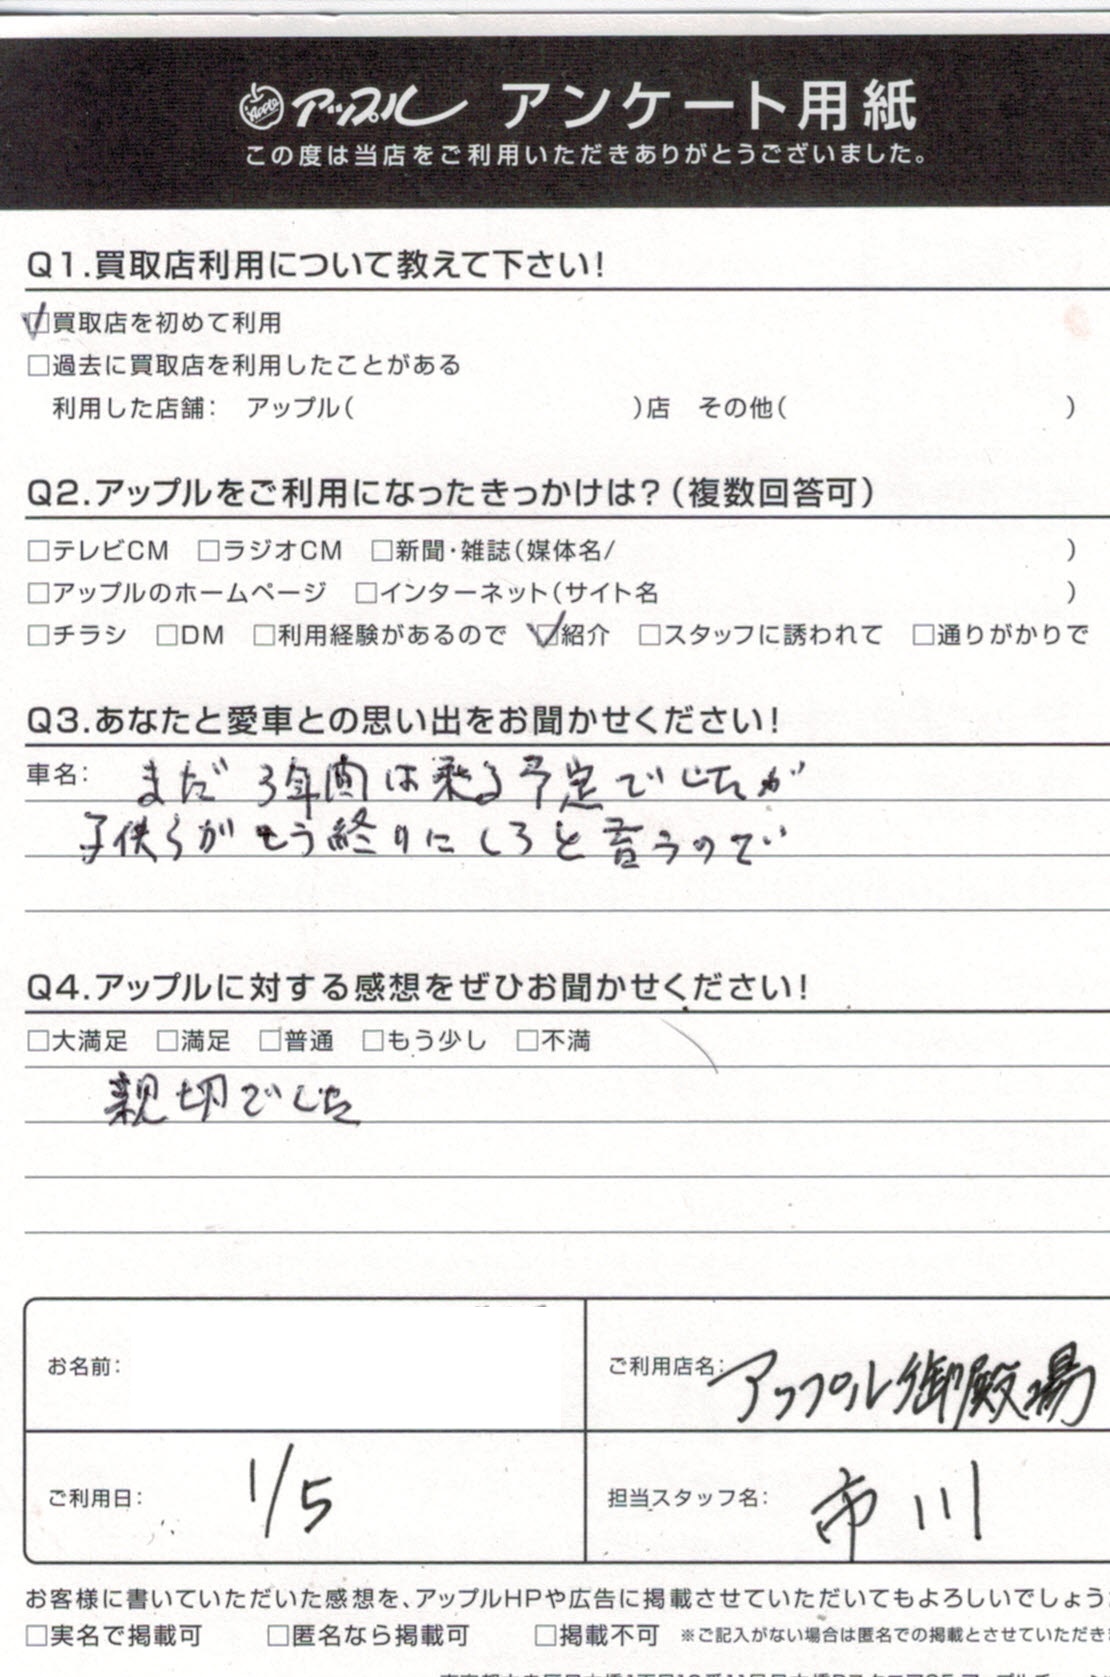 アップル アンケート用紙
この度は当店をご利用いただきありがとうございました。
Q1.買取店利用について教えて下さい!
☑買取店を初めて利用
□過去に買取店を利用したことがある
利用した店舗: アップル( )店 その他( )
Q2.アップルをご利用になったきっかけは?(複数回答可)
□テレビCM □ラジオCM □新聞・雑誌(媒体名/ )
□アップルのホームページ □インターネット(サイト名 )
□チラシ □DM □利用経験があるので ☑紹介 □スタッフに誘われて □通りがかりで
Q3.あなたと愛車との思い出をお聞かせください!
車名: まだ3年間は乗る予定でしたが
子供らがもう終りにしろと言うので
Q4.アップルに対する感想をぜひお聞かせください!
□大満足 □満足 □普通 □もう少し □不満
親切でした
お名前:
ご利用店名: アップル御殿場
ご利用日: 1/5
担当スタッフ名: 市川
お客様に書いていただいた感想を、アップルHPや広告に掲載させていただいてもよろしいでしょう
□実名で掲載可 □匿名なら掲載可 □掲載不可 ※ご記入がない場合は匿名での掲載とさせていただき